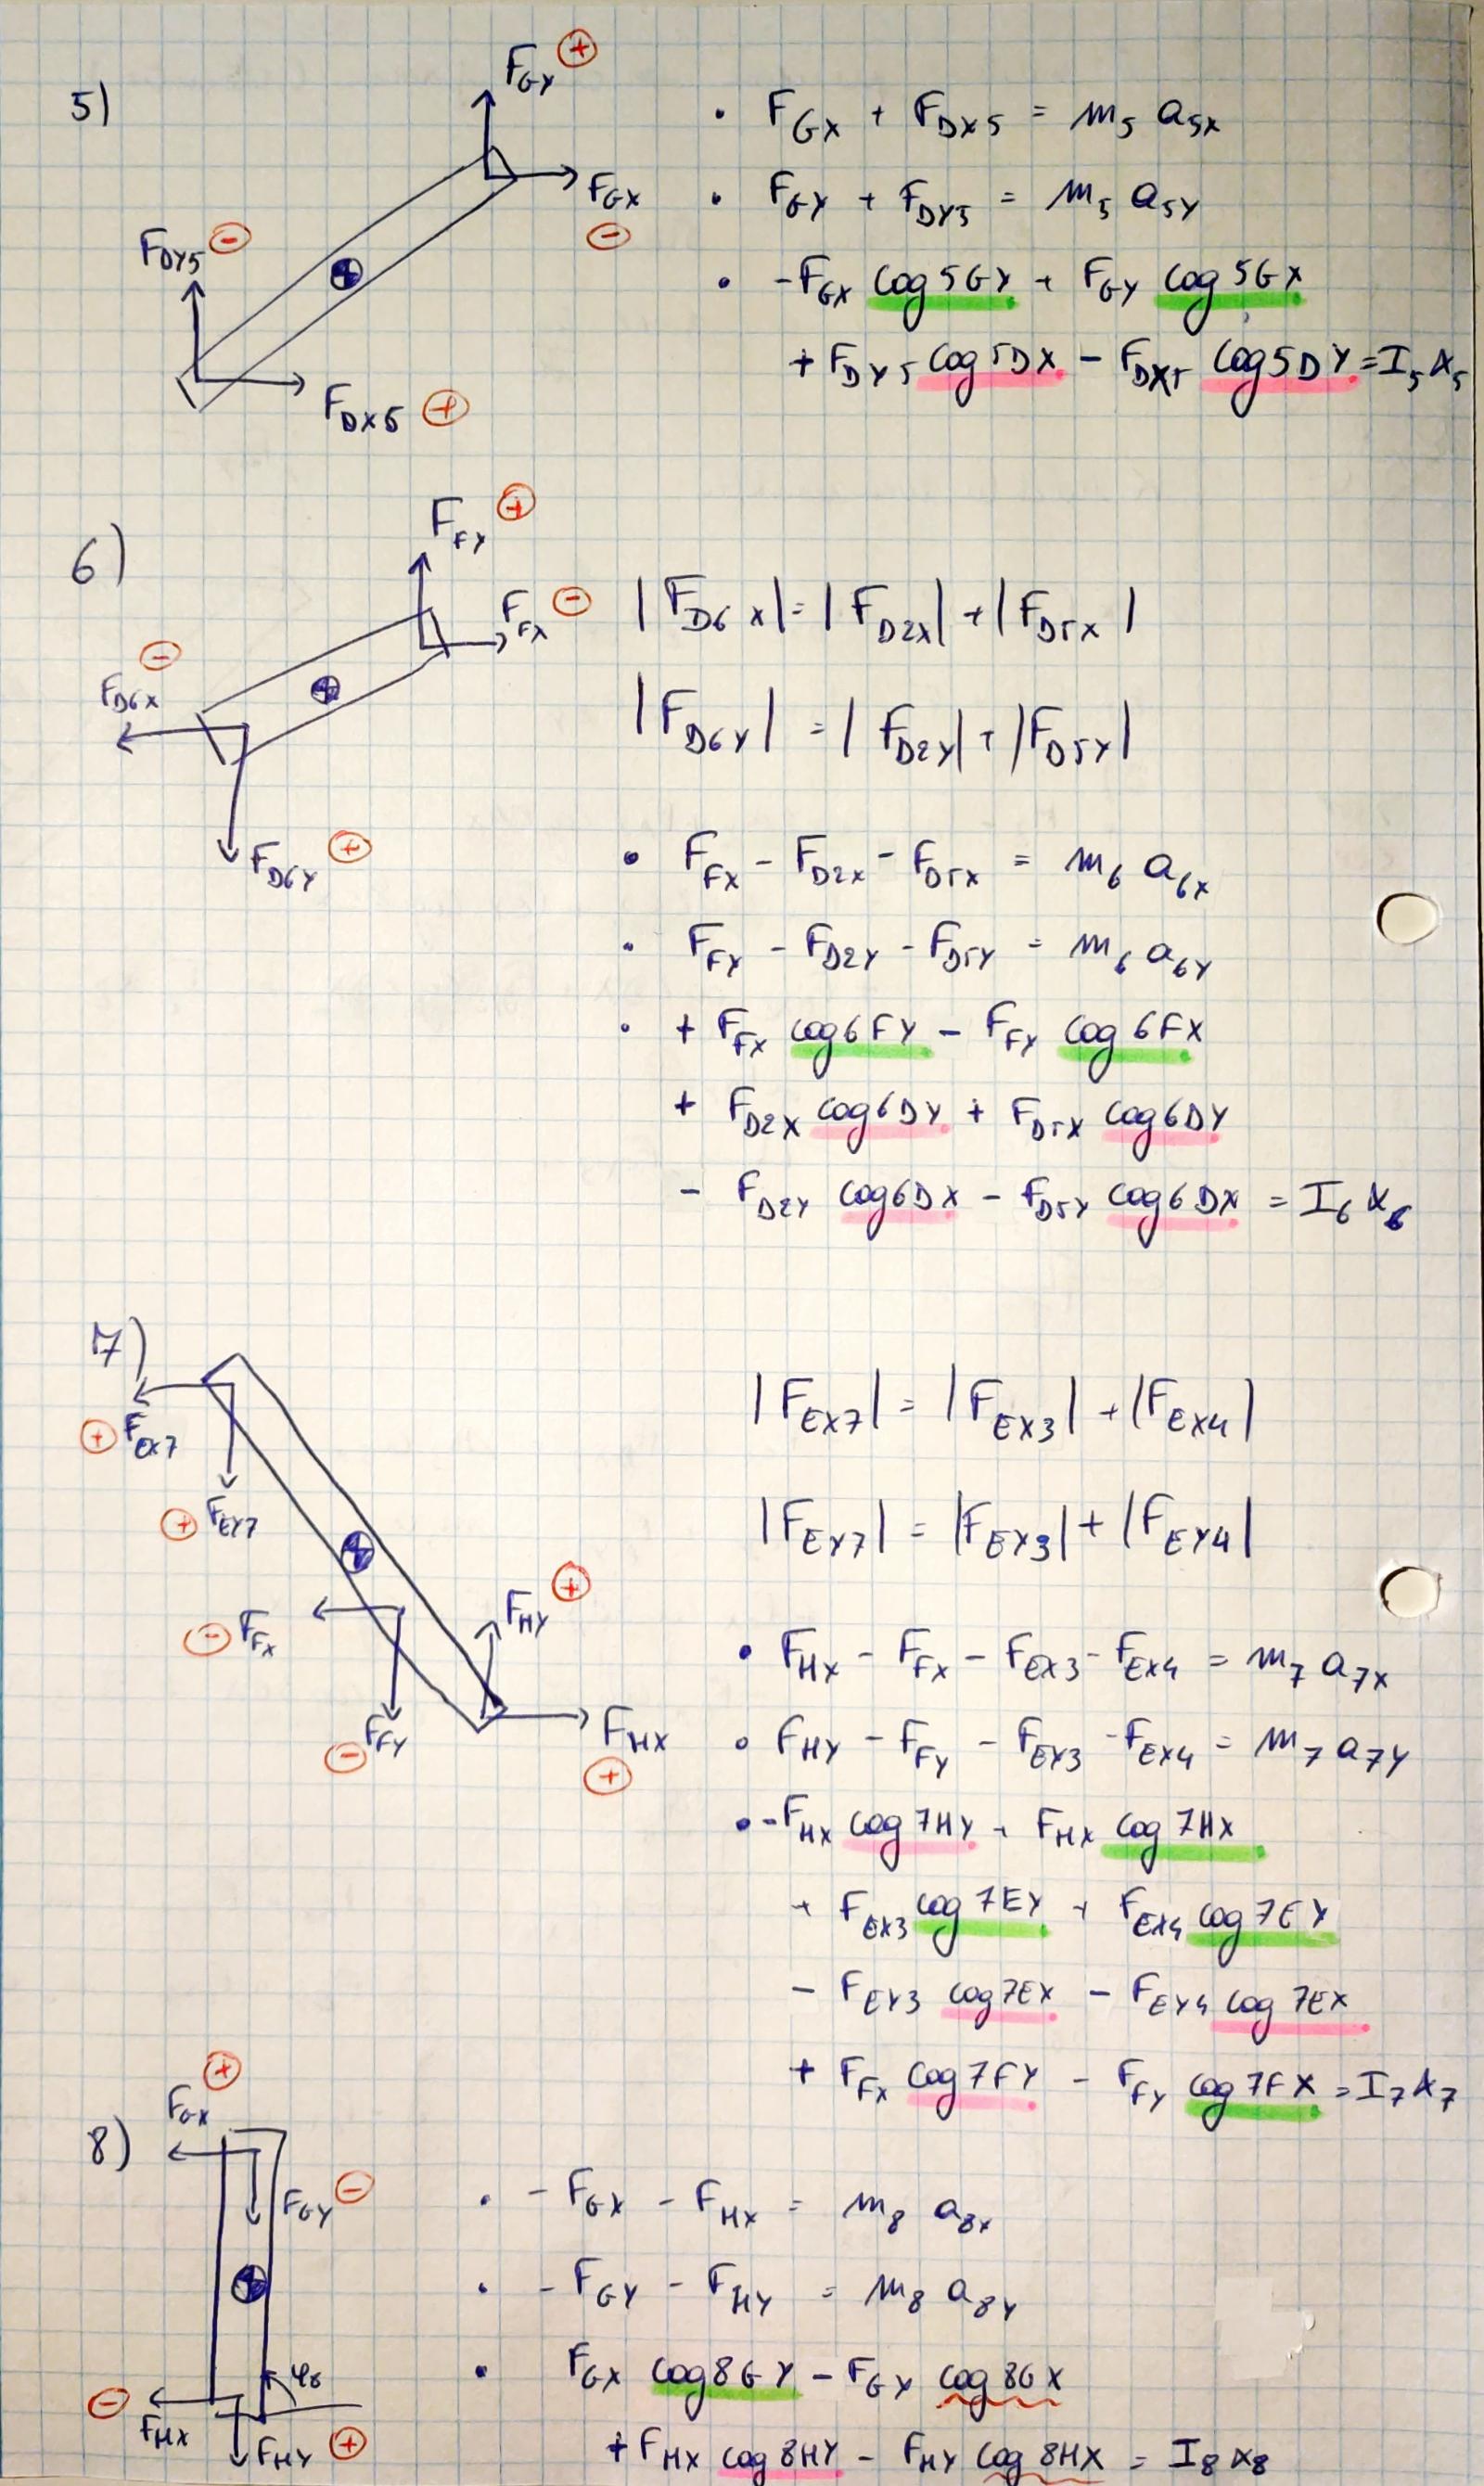 5)
F_GY ⊕
F_GX ⊖
F_DY5 ⊖
F_DX5 ⊕
• F_GX + F_DX5 = m_5 a_5X
• F_GY + F_DY5 = m_5 a_5Y
• -F_GX cog5GY + F_GY cog5GX
+ F_DY5 cog5DX - F_DX5 cog5DY = I_5 α_5
6)
F_FY ⊕
F_FX ⊖
F_D6X ⊖
F_D6Y ⊕
|F_D6X| = |F_D2X| + |F_D5X|
|F_D6Y| = |F_D2Y| + |F_D5Y|
• F_FX - F_D2X - F_D5X = m_6 a_6X
• F_FY - F_D2Y - F_D5Y = m_6 a_6Y
• + F_FX cog6FY - F_FY cog6FX
+ F_D2X cog6DY + F_D5X cog6DY
- F_D2Y cog6DX - F_D5Y cog6DX = I_6 α_6
7)
⊕ F_EX7
⊕ F_EY7
⊖ F_FX
⊖ F_FY
F_HY ⊕
F_HX ⊕
|F_EX7| = |F_EX3| + |F_EX4|
|F_EY7| = |F_EY3| + |F_EY4|
• F_HX - F_FX - F_EX3 - F_EX4 = m_7 a_7X
• F_HY - F_FY - F_EY3 - F_EX4 = m_7 a_7Y
• -F_HX cog7HY + F_HX cog7HX
+ F_EX3 cog7EY + F_EX4 cog7EY
- F_EY3 cog7EX - F_EY4 cog7EX
+ F_FX cog7FY - F_FY cog7FX = I_7 α_7
8)
F_GX ⊕
F_GY ⊖
φ_8
⊖ F_HX
F_HY ⊕
• - F_GX - F_HX = m_8 a_8X
• - F_GY - F_HY = m_8 a_8Y
• F_GX cog8GY - F_GY cog8GX
+ F_HX cog8HY - F_HY cog8HX = I_8 α_8